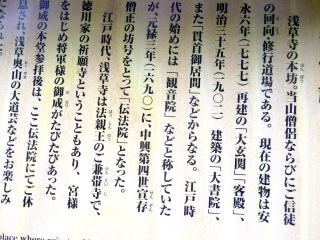 浅草寺の本坊。当山僧侶ならびにご信徒
の回向・修行道場である。現在の建物は安
永六年（一七七七）再建の「大玄関」「客殿」、
明治三十五年（一九〇二）建築の「大書院」、
また「貫首御居間」などからなる。江戸時
代の始めには「観音院」などと称していた
が、元禄三年（一六九〇）に、中興第四世宣存
僧正の坊号をとって「伝法院」となった。
江戸時代、浅草寺は法親王のご兼帯寺で、
徳川家の祈願寺ということもあり、宮様
をはじめ将軍様の御成がたびたびあった。
御成の本堂参拝後は、ここ伝法院にてご休
息され、浅草奥山の大道芸などをお楽しみ
place where